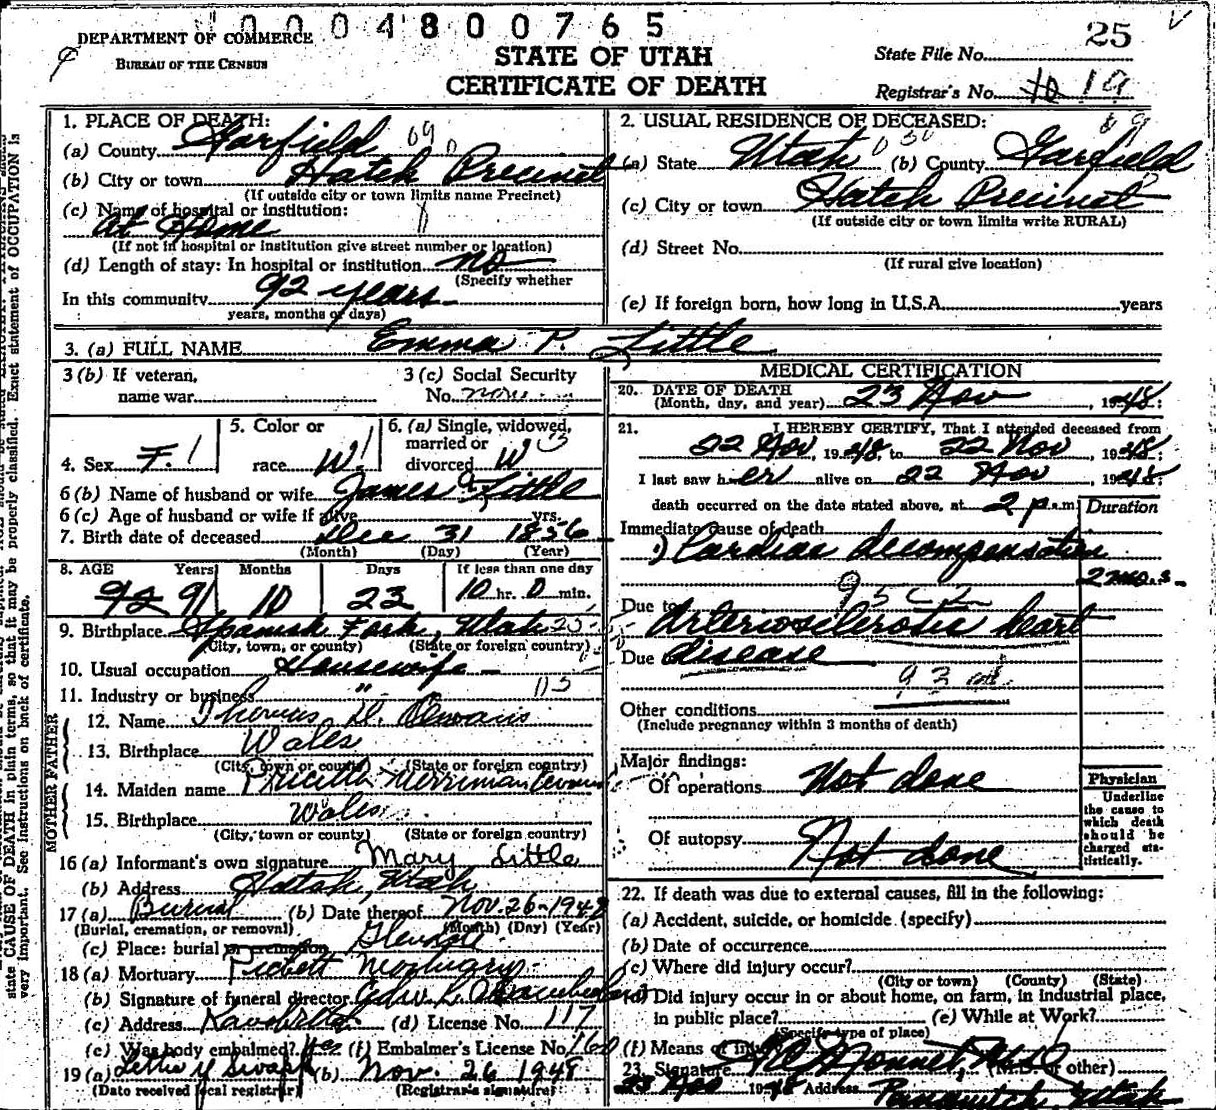 0004800765
DEPARTMENT OF COMMERCE
BUREAU OF THE CENSUS
STATE OF UTAH
CERTIFICATE OF DEATH
25
State File No.
Registrar's No. 10 19
1. PLACE OF DEATH:
(a) County Garfield
(b) City or town Hatch Precinct
(If outside city or town limits name Precinct)
(c) Name of hospital or institution:
At Home
(If not in hospital or institution give street number or location)
(d) Length of stay: In hospital or institution no
(Specify whether
In this community 92 years
years, months or days)
2. USUAL RESIDENCE OF DECEASED:
(a) State Utah (b) County Garfield
(c) City or town Hatch Precinct
(If outside city or town limits write RURAL)
(d) Street No.
(If rural give location)
(e) If foreign born, how long in U.S.A. years
3. (a) FULL NAME Emma P. Little
3 (b) If veteran,
name war
3 (c) Social Security
No. none
4. Sex F.
5. Color or
race W.
6. (a) Single, widowed,
married or
divorced W
6 (b) Name of husband or wife James Little
6 (c) Age of husband or wife if alive yrs.
7. Birth date of deceased Dec 31 1856
(Month) (Day) (Year)
8. AGE Years Months Days If less than one day
92 91 10 23 10 hr. 0 min.
9. Birthplace Spanish Fork, Utah
(City, town, or county) (State or foreign country)
10. Usual occupation Housewife
11. Industry or business "
FATHER
12. Name Thomas D.
13. Birthplace Wales
(City, town or county) (State or foreign country)
MOTHER
14. Maiden name Merriman
15. Birthplace Wales
(City, town or county) (State or foreign country)
16 (a) Informant's own signature Mary Little
(b) Address Hatch, Utah
17 (a) Burial (b) Date thereof Nov. 26-1948
(Burial, cremation, or removal) (Month) (Day) (Year)
(c) Place: burial or cremation Glendale
18 (a) Mortuary Mortuary
(b) Signature of funeral director
(c) Address (d) License No. 117
(e) Was body embalmed? Yes (f) Embalmer's License No. 160
19 (a) (b) Nov. 26 1948
(Date received local registrar) (Registrar's signature)
MEDICAL CERTIFICATION
20. DATE OF DEATH
(Month, day, and year) 23 Nov, 1948.
21. I HEREBY CERTIFY, That I attended deceased from
22 Nov, 1948 to 22 Nov, 1948
I last saw her alive on 22 Nov 1948
death occurred on the date stated above, at 2 p.m.
Duration
Immediate cause of death
1) Cardiac decompensation
2 mos.
Due to Arteriosclerotic heart
Due disease
Other conditions
(Include pregnancy within 3 months of death)
Major findings:
Of operations Not done
Of autopsy Not done
Physician
Underline
the cause to
which death
should be
charged sta-
tistically.
22. If death was due to external causes, fill in the following:
(a) Accident, suicide, or homicide (specify)
(b) Date of occurrence
(c) Where did injury occur?
(City or town) (County) (State)
(d) Did injury occur in or about home, on farm, in industrial place,
in public place? (e) While at Work?
(Specify type of place)
(f) Means of injury
23. Signature (M.D. or other)
23 Nov 1948 Address Panguitch Utah
state CAUSE OF DEATH in plain terms, so that it may be properly classified. Exact statement of OCCUPATION is
very important. See instructions on back of certificate.